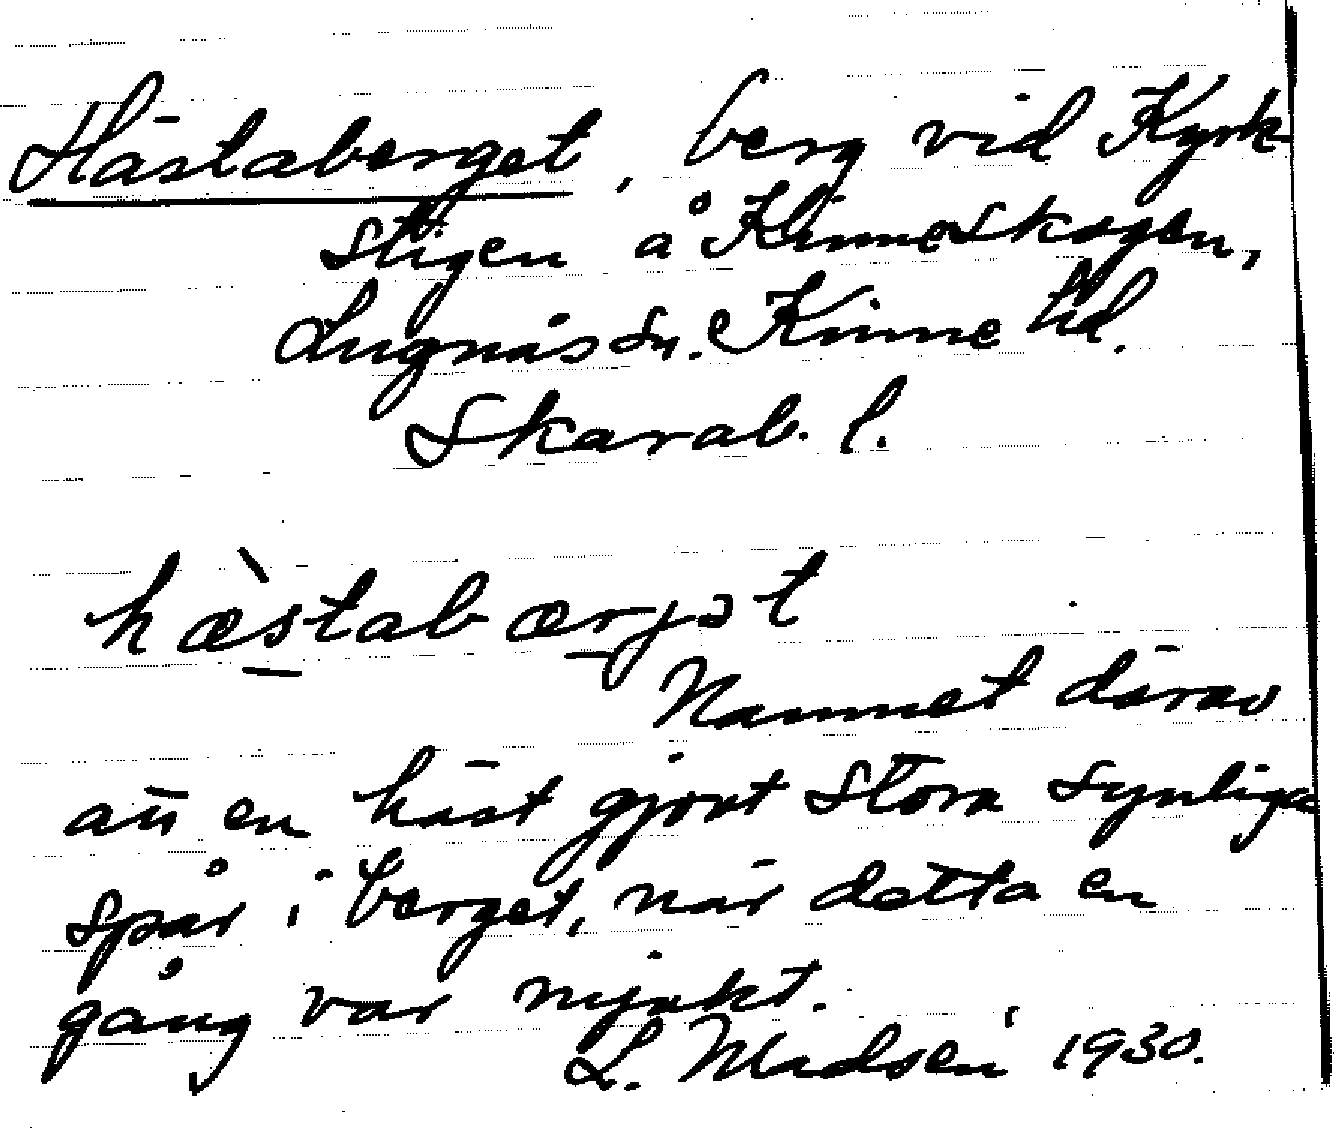 Hästaberget, berg vid Kyrk-
stigen å Kinneskogen,
Lugnås sn. Kinne hd.
Skarab. l.
hæ̀stabærjət
Namnet därav
att en häst gjort stora synliga
spår i berget, när detta en
gång var mjukt.
L. Madsén 1930.